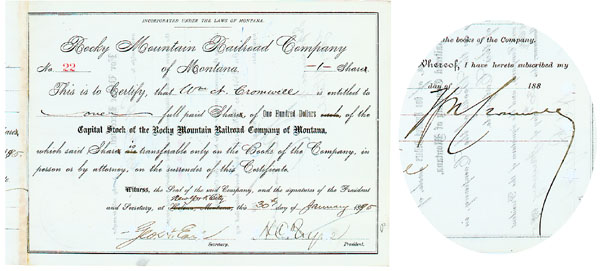 INCORPORATED UNDER THE LAWS OF MONTANA.
Rocky Mountain Railroad Company
No. 22 of Montana. -1- Share
This is to Certify, that Wm N. Cromwell is entitled to
one full paid Share of One Hundred Dollars each, of the
Capital Stock of the Rocky Mountain Railroad Company of Montana,
which said Share is transferable only on the Books of the Company, in
person or by attorney, on the surrender of this Certificate.
Witness, the Seal of the said Company, and the signature of the President
New York City
and Secretary, at Helena, Montana, this 30th day of January 1890
Secretary. President.
the books of the Company.
Whereof, I have hereto subscribed my
day of 188
Wm N. Cromwell